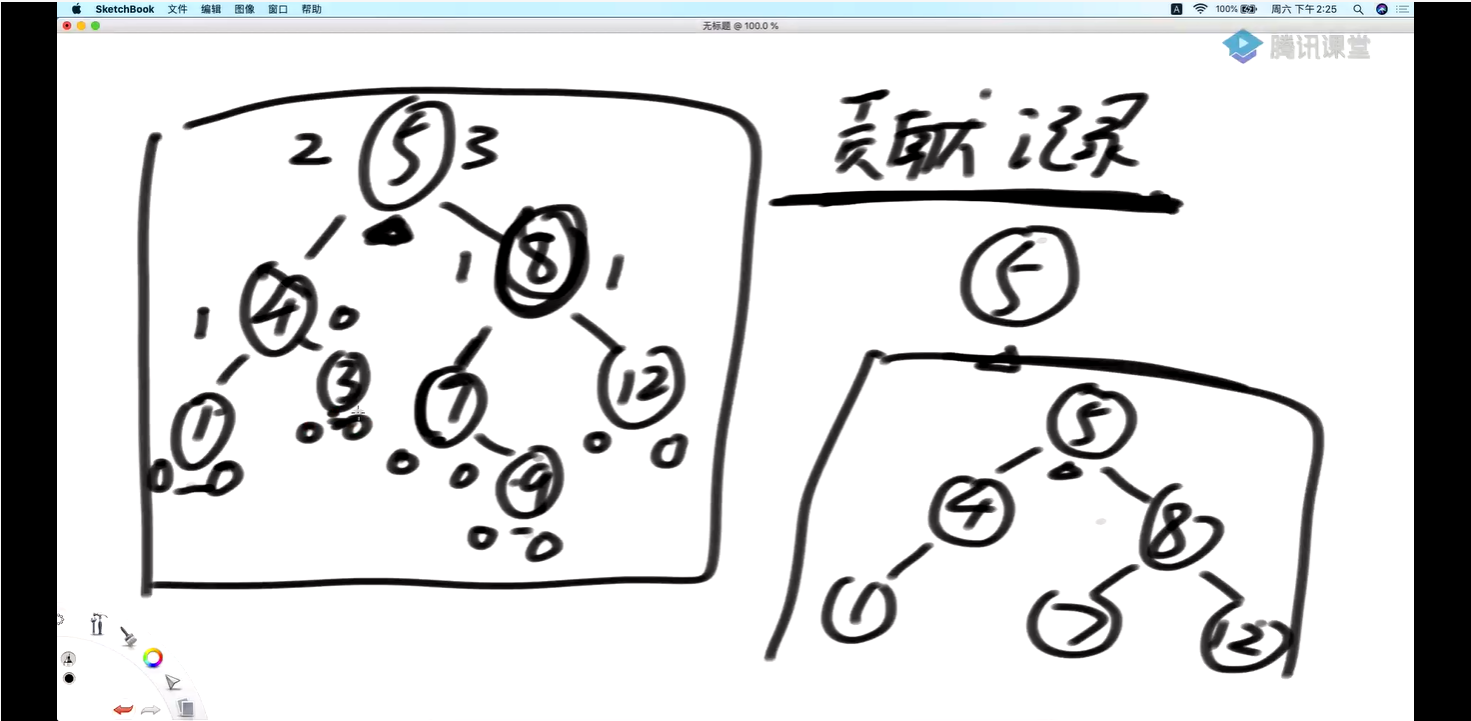 SketchBook 文件 编辑 图像 窗口 帮助 A 100% 周六 下午 2:25
无标题 @ 100.0 %
腾讯课堂
贡献记录
2 5 3
1 8 1
1 4 0
3
7
12
1
0 0
0 0
0 0
0 0
9
0 0
5
5
4
8
1
7
12